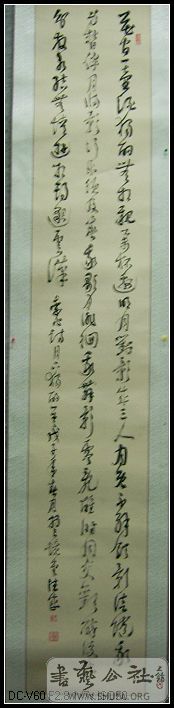 花間一壺酒獨酌無相親舉杯邀明月對影成三人月既不解飲影徒隨我
身暫伴月將影行樂須及春我歌月徘徊我舞影零亂醒時同交歡醉後各
分散永結無情遊相期邈雲漢 李白詩月下獨酌 戊子年春月
書藝公社
DC-V60 F2.8